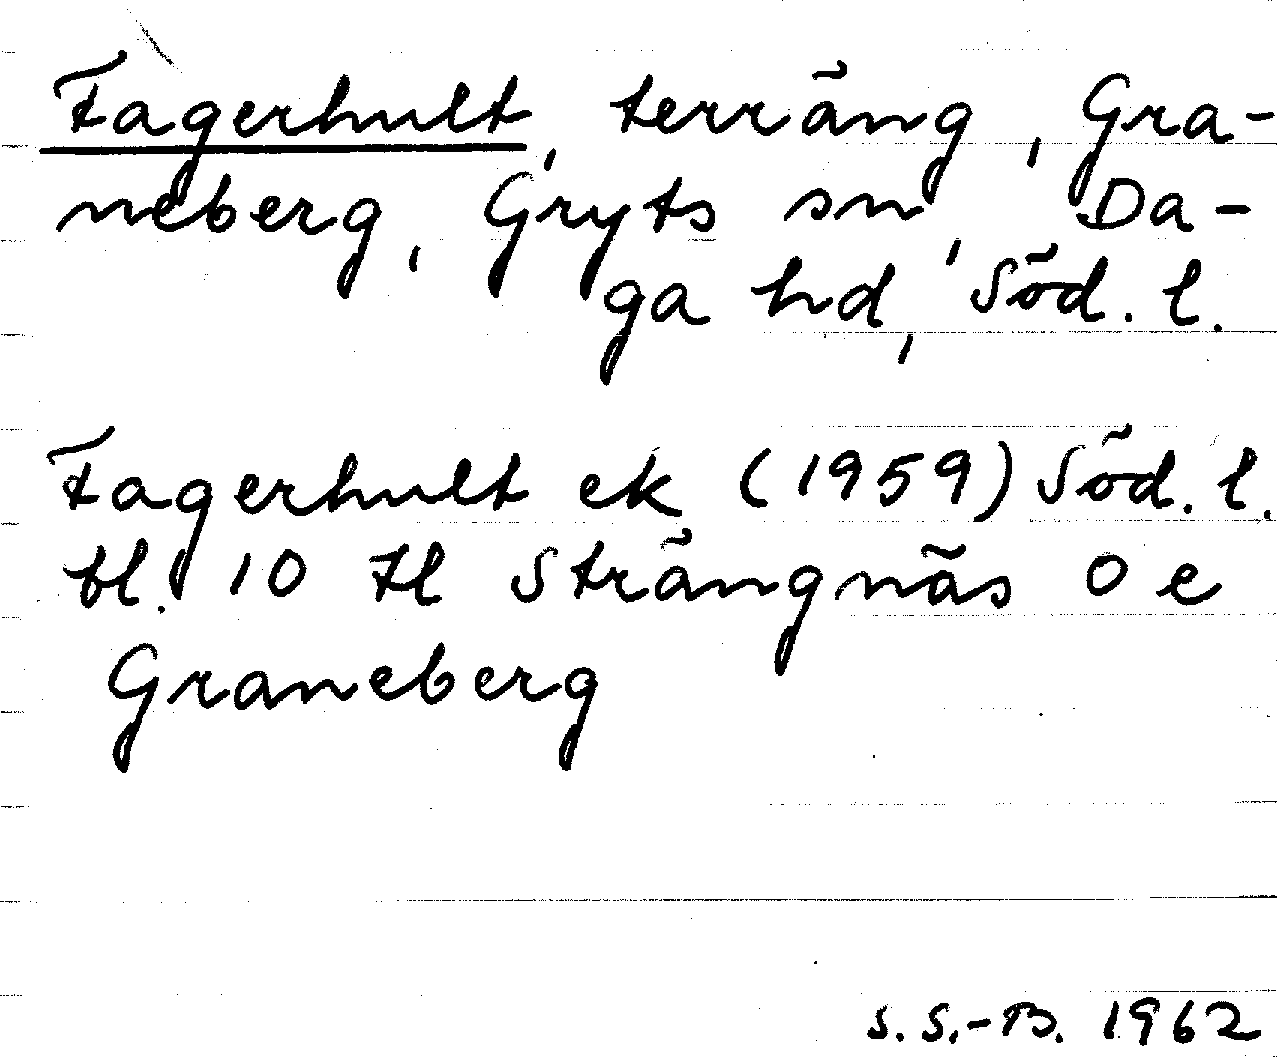 Fagerhult, terräng, Gra-
neberg, Gryts sn, Da-
ga hd, Söd. l.
Fagerhult ek (1959) Söd. l.
bl. 10 Fl Strängnäs O e
Graneberg
S. S.-B. 1962